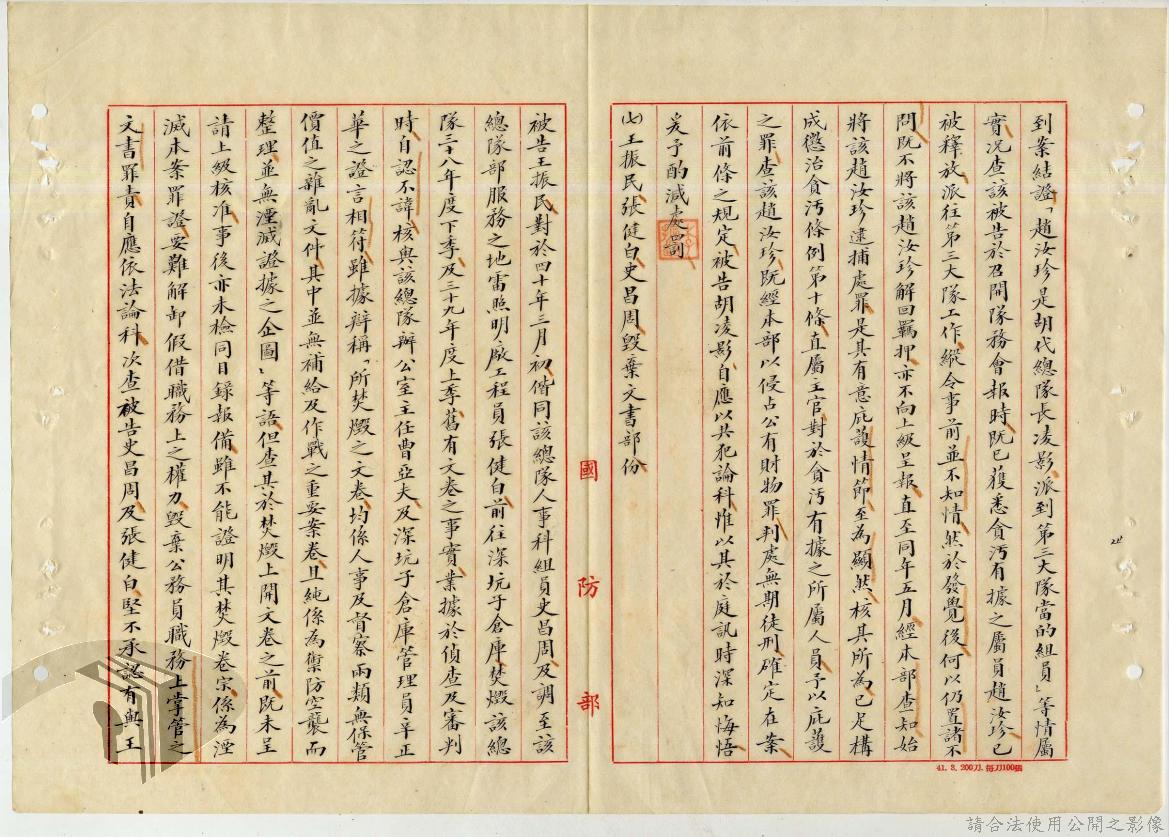 到案結證「趙汝珍是胡代總隊長凌影派到第三大隊當的組員」等情屬
實況查該被告於召開隊務會報時既已獲悉貪污有據之屬員趙汝珍已
被釋放派往第三大隊工作縱令事前並不知情然於發覺後何以仍置諸不
問既不將該趙汝珍解回羈押亦不向上級呈報直至同年五月經本部查知始
將該趙汝珍逮捕處罪是其有意庇護情節至為顯然核其所為已足構
成懲治貪污條例第十條直屬主官對於貪污有據之所屬人員予以庇護
之罪查該趙汝珍既經本部以侵占公有財物罪判處無期徒刑確定在案
依前條之規定被告胡凌影自應以共犯論科惟以其於庭訊時深知悔悟
爰予酌減處罰
(七)王振民張健白史昌周毀棄文書部份
被告王振民對於四十年三月初偕同該總隊人事科組員史昌周及調至該
總隊部服務之地雷照明廠工程員張健白前往深坑子倉庫焚燬該總
隊三十八年度下季及三十九年度上季舊有文卷之事實業據於偵查及審判
時自認不諱核與該總隊辦公室主任曹亞夫及深坑子倉庫管理員辛正
華之證言相符雖據辯稱「所焚燬之文卷均係人事及督察兩類無保管
價值之雜亂文件其中並無補給及作戰之重要案卷且純係為禦防空襲而
整理並無湮滅證據之企圖」等語但查其於焚燬上開文卷之前既未呈
請上級核准事後亦未檢同目錄報備雖不能證明其焚燬卷宗係為湮
滅本案罪證要難解卸假借職務上之權力毀棄公務員職務上掌管之
文書罪責自應依法論科次查被告史昌周及張健白堅不承認有與王
國防部
41. 3. 200刀. 每刀100張
請合法使用公開之影像